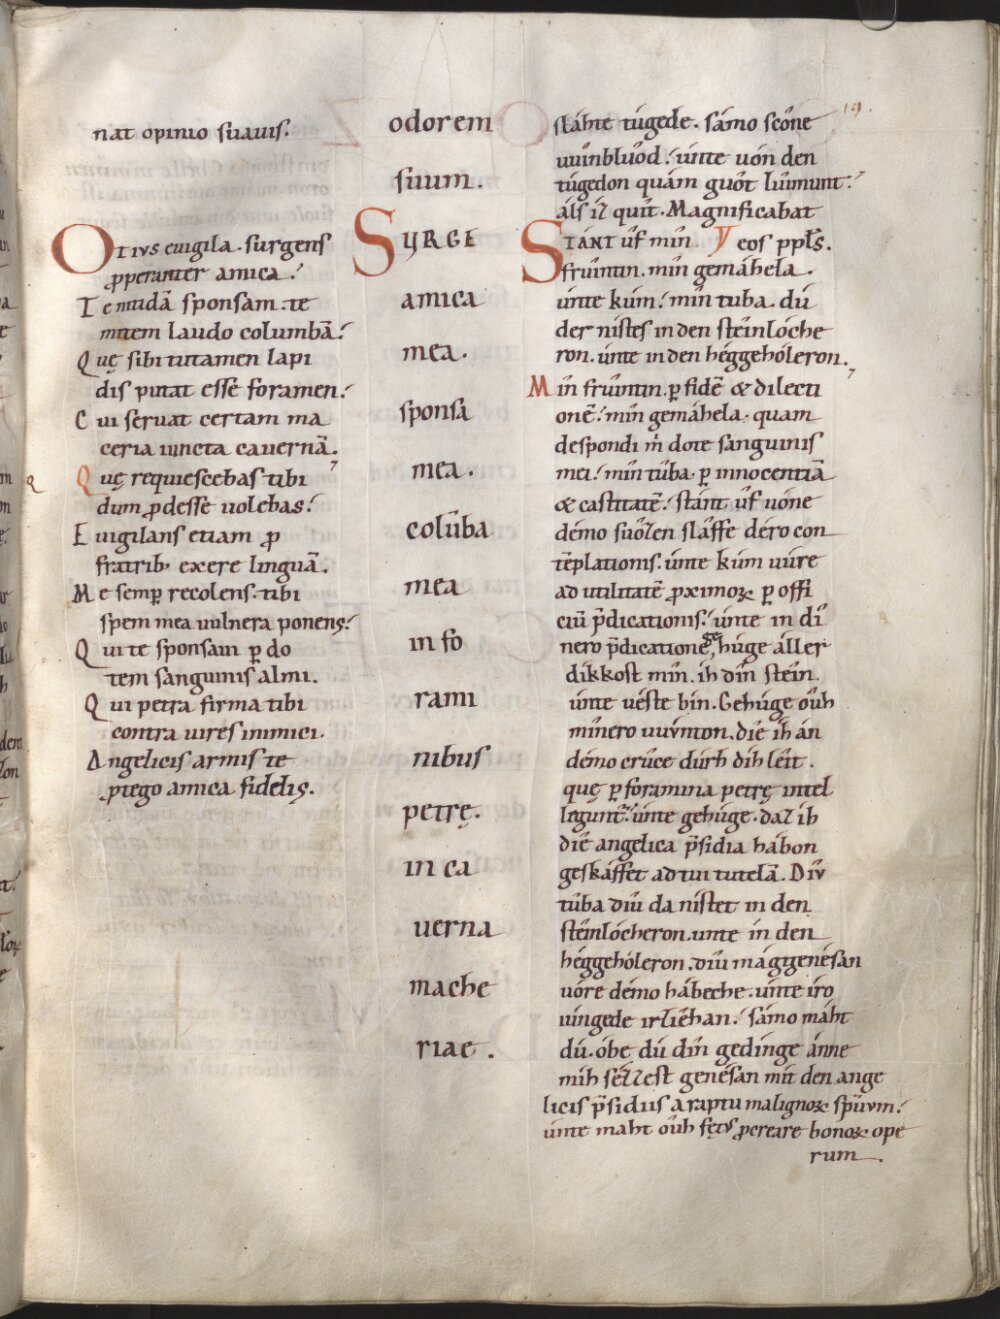 19.
nat opinio suauis.
OTIVS euigila. surgens
ꝓperanter amica.
Te nitidā sponsam. te
mitem laudo columbā.
Quę sibi tutamen lapi
dis putat esse foramen.
Cui seruat certam ma
ceria iuncta cauernā.
Quę requiescebas tibi
dum ꝓdesse uolebas.
Euigilans etiam ꝓ
fratrib; exere linguā.
Me semꝑ recolens. tibi
spem mea uulnera ponens.
Qui te sponsam ꝑ do
tem sanguinis almi.
Qui petra firma tibi
contra uires inimici.
Angelicis armis te
ꝓtego amica fidelis.
odorem
suum.
SURGE
amica
mea.
sponsa
mea.
colūba
mea
in fo
rami
nibus
petrę.
in ca
uerna
mache
riae.
sláhte túgede. sámo scône
uuînblûod. únte uón den
túgedon quám guôt liúmunt.
áls iz quît. Magnificabat
STANT ûf mîn eos pp̄ls.
friûntin. mîn gemáhela.
únte kúm. mîn tuba. dû
der nístes in den stêinlóche
ron. únte in den héggehóleron.
Mîn friûntin. ꝑ fidē & dilecti
onē. mîn gemáhela. quam
despondi m̄ dote sanguinis
mei. mîn tûba. ꝑ innocentiā
& castitatē. stánt ûf uóne
démo suôzen slâffe déro con
tēplationis. únte kúm uúre
ad utilitatē ꝓximoꝝ ꝑ offi
ciū p̄dicationis. únte in dî
nero p̄dicatione, húge áller
díkkost mîn. ih dîn stêin.
únte uéste bin. Gehúge ôuh
mînero uuúnton. díe ih án
démo crûce dúrh díh léit.
quę ꝑ foramina petrę intel
legunt̄. únte gehúge. daz ih
díe angelica p̄sidia hábon
geskáffet ad tui tutelā. Díu
tûba díu da nístet in den
stêinlócheron. unte in den
héggehóleron. díu mág genésan
uóre démo hábeche. únte íro
iúngede irzîehan. sámo máht
dû. óbe dû dîn gedínge ánne
mih sézzest genésan mit den ange
licis p̄sidiis a raptu malignoꝝ spūum.
únte maht ôuh fętus ꝓcreare bonoꝝ ope
rum.